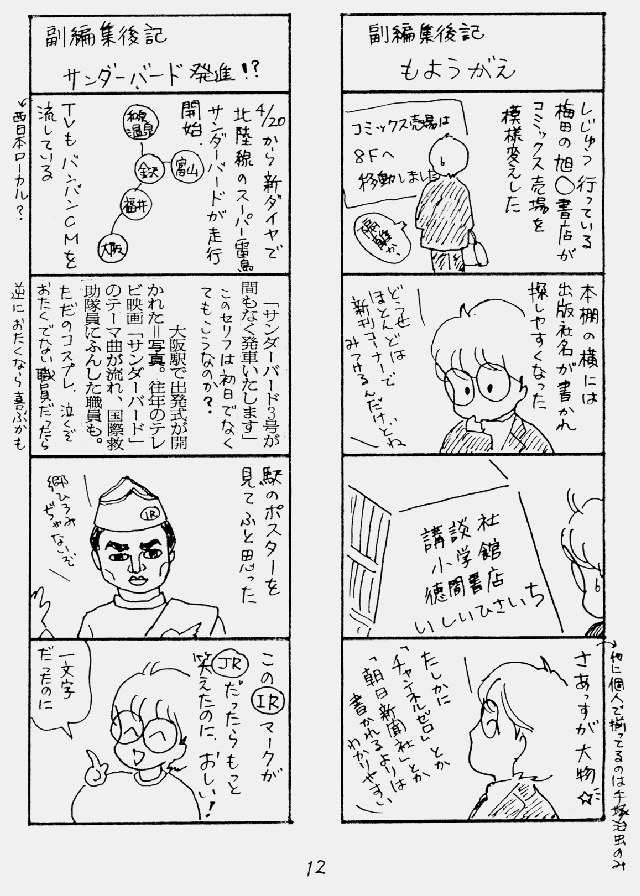 副編集後記
もようがえ
しじゅう行っている
梅田の旭〇書店が
コミックス売場を
模様変えした
コミックス売場は
8Fへ
移動しました
本棚の横には
出版社名が書かれ
探しやすくなった
どうせ
ほとんどは
新刊コーナーで
みつけるんだけどね
講談社
小学館
徳間書店
いしいひさいち
さあっすが大物☆
→他に個人で揃ってるのは手塚治虫のみ
たしかに
「チャンネルゼロ」とか
「朝日新聞社」とか
書かれるよりは
わかりやすい
副編集後記
サンダーバード発進!?
4/20から新ダイヤで
北陸線のスーパー雷鳥
サンダーバードが走行
開始.
和倉温泉
金沢
富山
福井
大阪
TVもバンバンCMを
流している
←西日本ローカル?
「サンダーバード3号が
間もなく発車いたします」
このセリフは初日でなく
てもこうなのか?
大阪駅で出発式が開
かれた=写真。往年のテレ
ビ映画「サンダーバード」
のテーマ曲が流れ、国際救
助隊員にふんした職員も。
ただのコスプレ、泣くぞ
おたくでない職員だったら
逆におたくなら喜ぶかも
駅のポスターを
見てふと思った
郷ひろみ
ぢゃないぞ
IR
このIRマークが
JRだったらもっと
笑えたのに、おしい!
一文字
だったのに
12